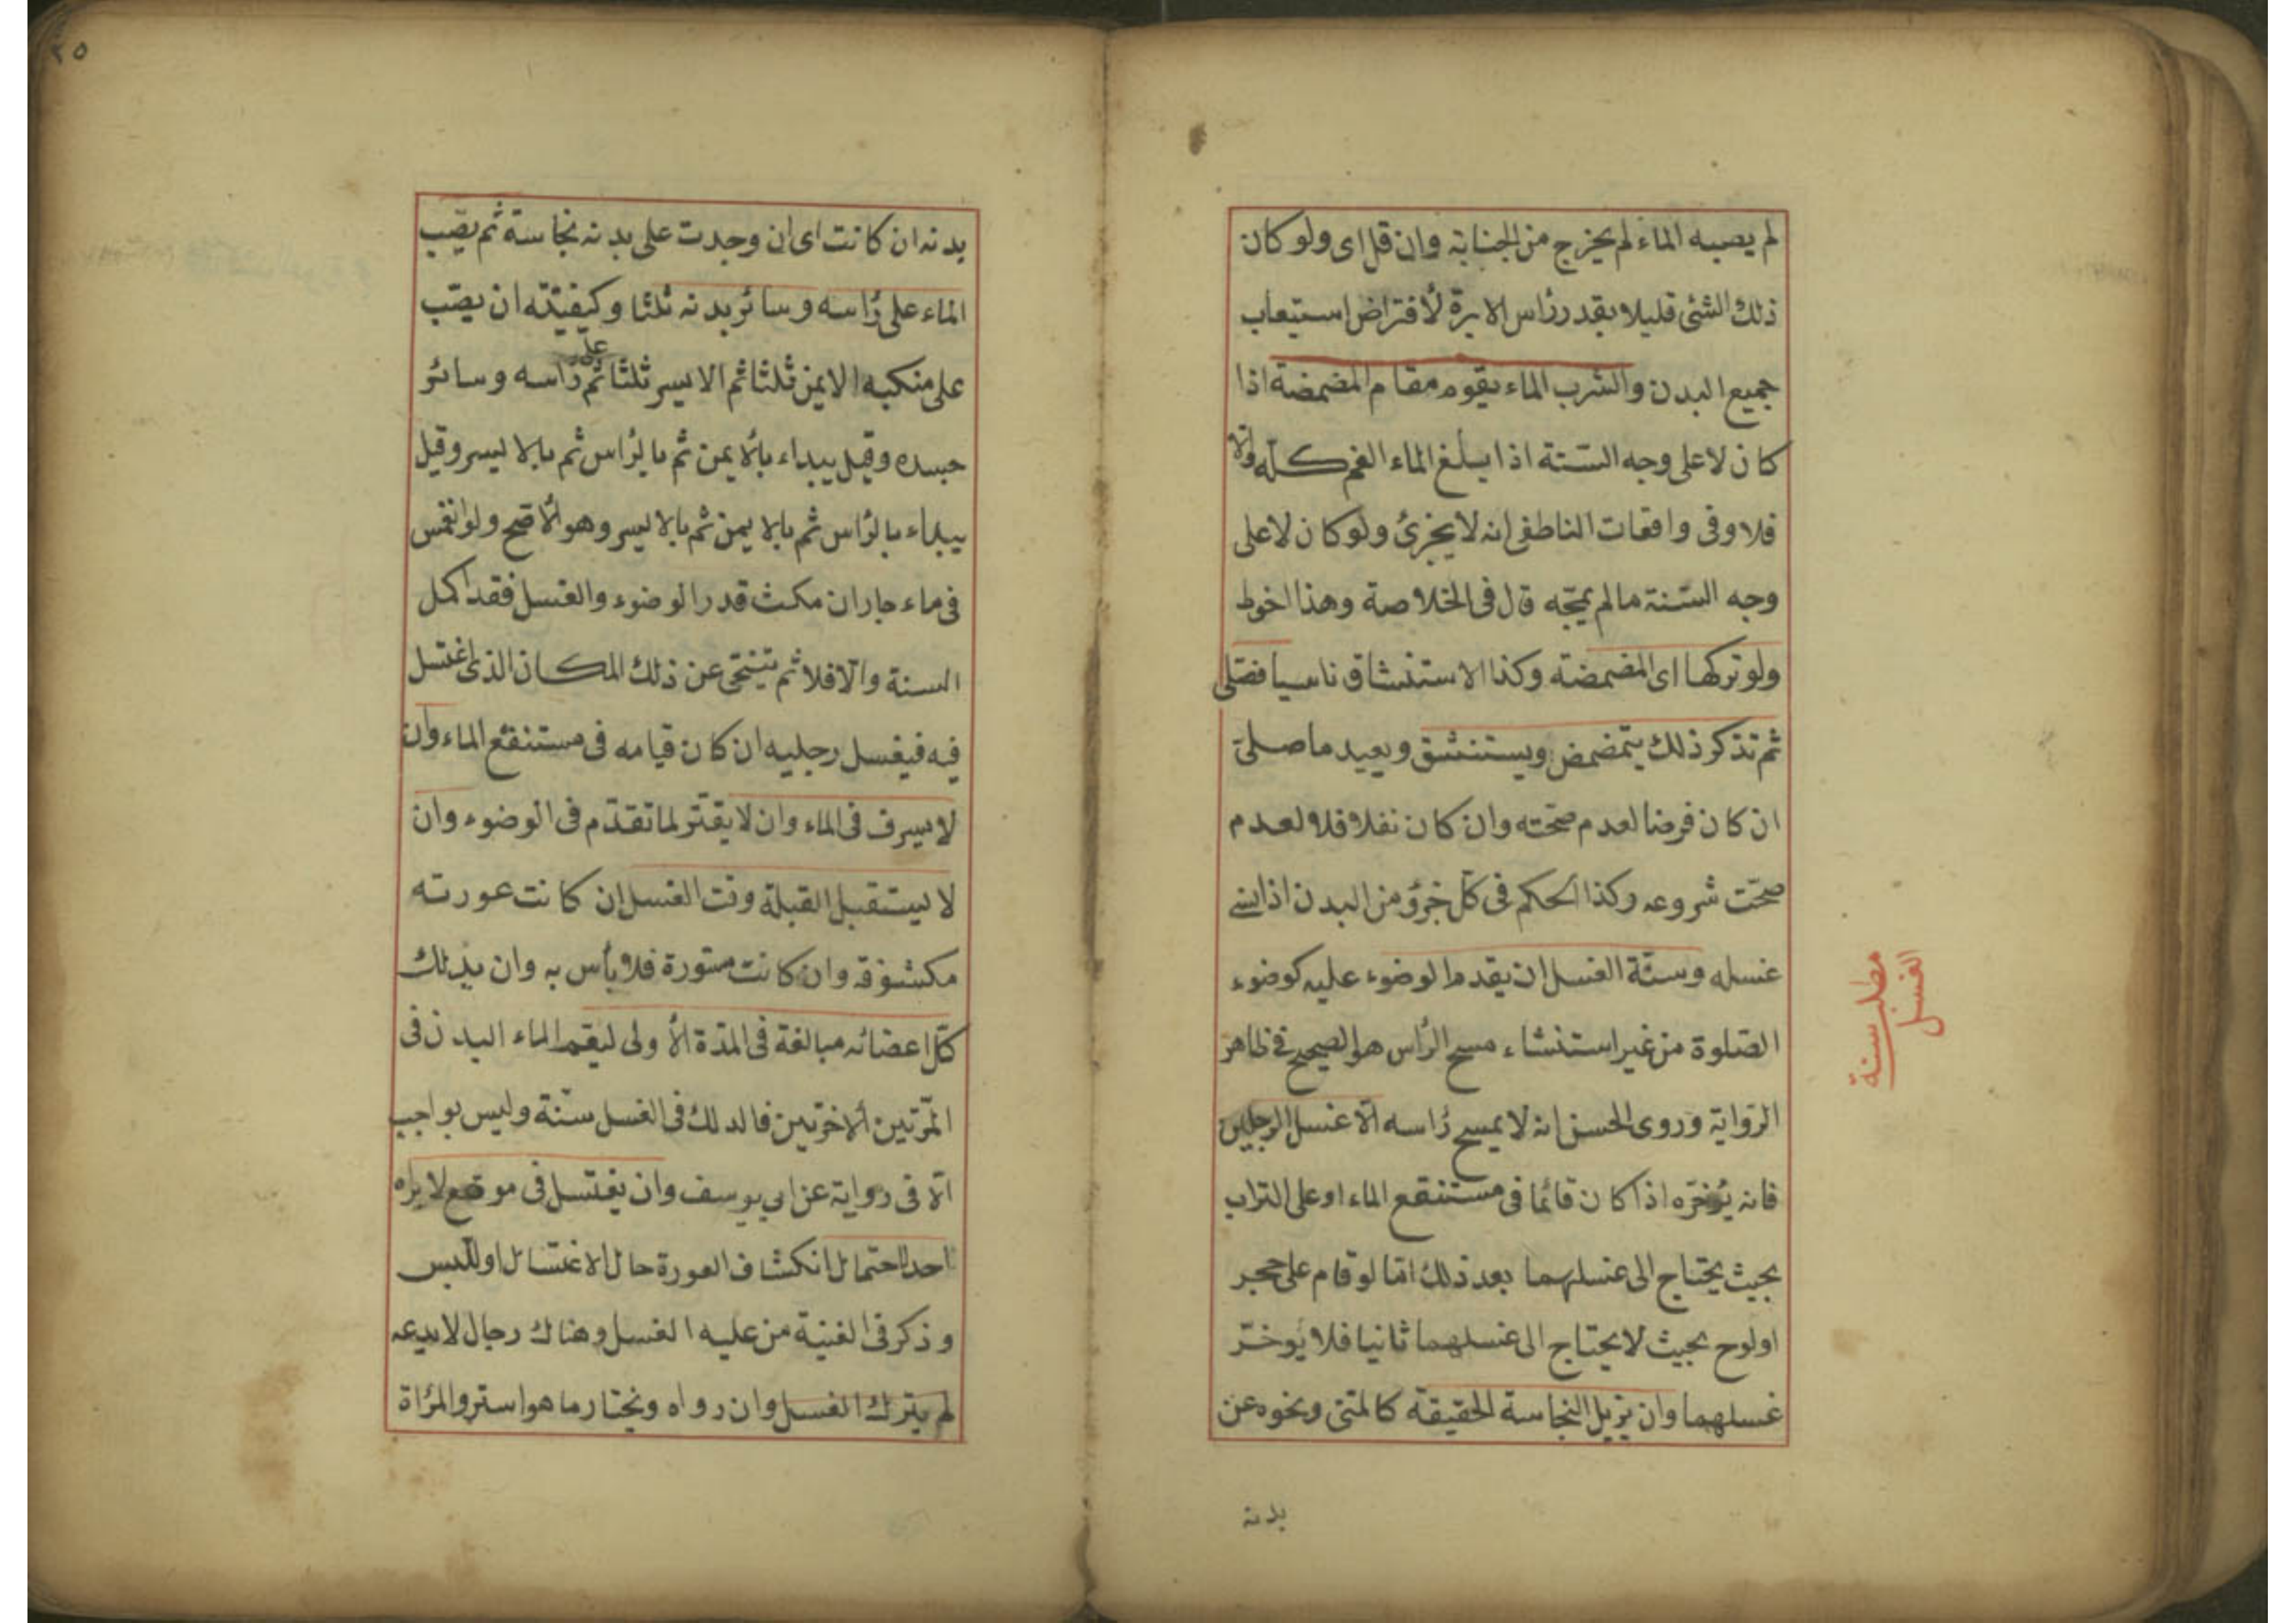 لم يصبه الماء لم يخرج من الجنابة وان قل اى ولو كان
ذلك الشئ قليلا بقدر رأس الابرة لأفتراض استيعاب
جميع البدن والشرب الماء يقوم مقام المضمضة اذا
كان لا على وجه السنة اذا يبلغ الماء الفم كله والا
فلا وفى واقعات الناطفى انه لا يجزئ ولو كان لا على
وجه السنة مالم يمجه قال فى الخلاصة وهذا احوط
ولو تركها اى المضمضة وكذا الاستنشاق ناسيا فصلى
ثم تذكر ذلك يتمضمض ويستنشق ويعيد ما صلى
ان كان فرضا لعدم صحته وان كان نفلا فلا لعدم
صحت شروعه وكذا الحكم فى كل جزؤ من البدن اذا نسى
غسله وسنة الغسل ان يقدم الوضوء عليه كوضوء
الصلوة من غير استنشاء مسح الرأس هو الصحيح فى ظاهر
الرواية وروى الحسن انه لا يمسح رأسه الا غسل الرجلين
فانه يؤخره اذا كان قائما فى مستنقع الماء او على التراب
بحيث يحتاج الى غسلهما بعد ذلك اما لو قام على حجر
او لوح بحيث لا يحتاج الى غسلهما ثانيا فلا يؤخر
غسلهما وان يزيل النجاسة الحقيقة كالمنى ونحوه عن
بدنه
مطلب سنة
الغسل
٢٥
بدنه ان كانت اى ان وجدت على بدنه نجاسة ثم يصب
الماء على رأسه وسائر بدنه ثلثا وكيفيته ان يصب
على منكبه الايمن ثلثا ثم الايسر ثلثا ثم على رأسه وسائر
جسده وقيل يبداء بالأيمن ثم بالرأس ثم بالايسر وقيل
يبداء بالرأس ثم بالايمن ثم بالايسر وهو الأصح ولو انغمس
فى ماء جار ان مكث قدر الوضوء والغسل فقد اكمل
السنة والا فلا ثم يتنحى عن ذلك المكان الذى اغتسل
فيه فيغسل رجليه ان كان قيامه فى مستنقع الماء وان
لا يسرف فى الماء وان لا يقتر لما تقدم فى الوضوء وان
لا يستقبل القبلة وقت الغسل ان كانت عورته
مكشوفة وان كانت مستورة فلا بأس به وان يدلك
كل اعضائه مبالغة فى المدة الأولى ليقم الماء البدن فى
المرتين ألاخرتين فالدلك فى الغسل سنة وليس بواجب
الا فى رواية عن ابى يوسف وان يغتسل فى موضع لا يراه
احد لاحتمال انكشاف العورة حال الاغتسال او اللبس
وذكر فى الغنية من عليه الغسل وهناك رجال لا يدعه
لم يترك الغسل وان رواه ونختار ما هو استر والمرأة